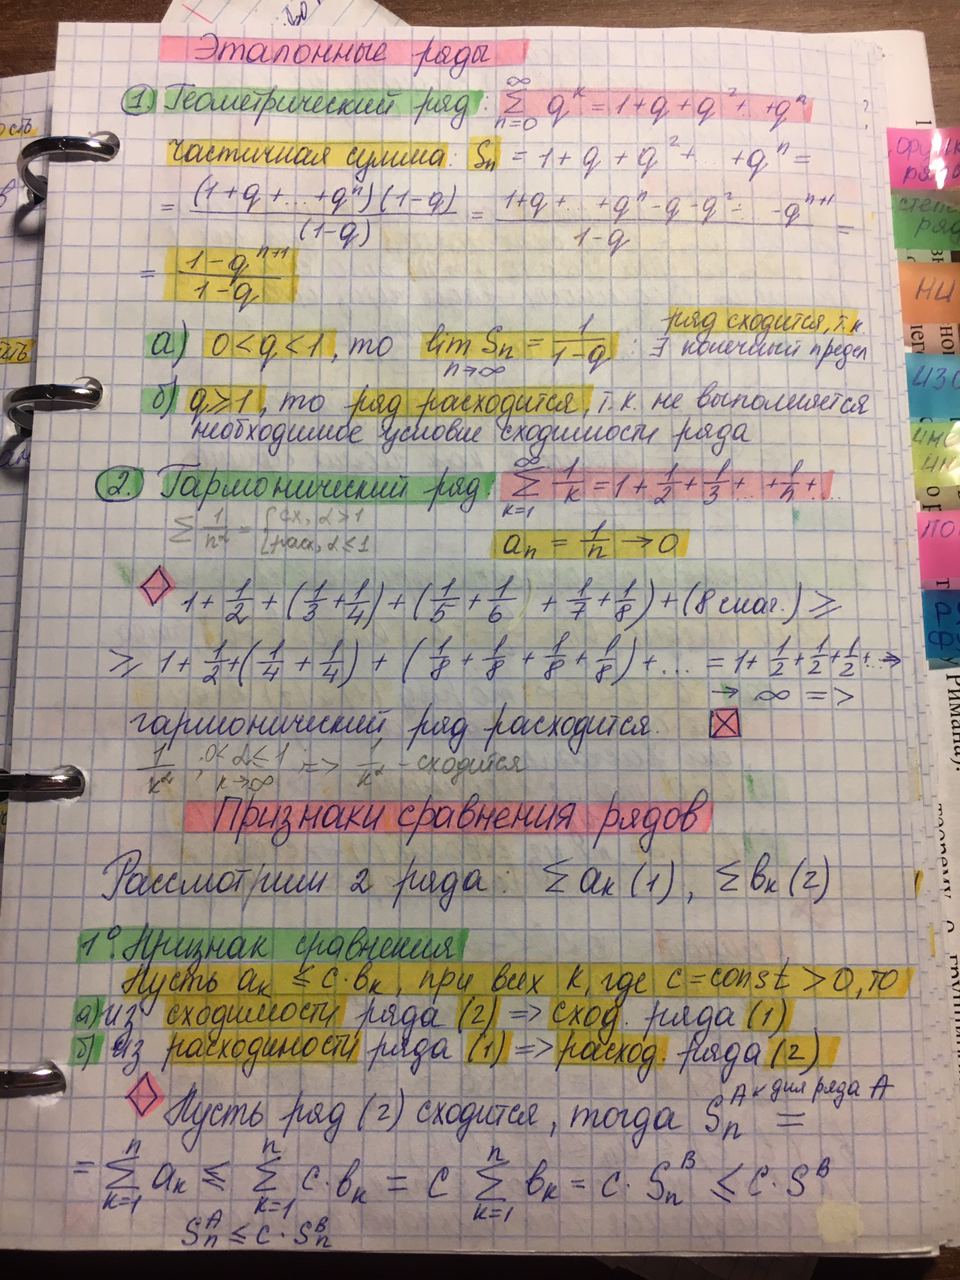 Эталонные ряды
1. Геометрический ряд: ∞ ∑ n=0 q^k = 1+q+q^2+...+q^n
частичная сумма: Sn = 1+q+q^2+...+q^n =
= (1+q+...+q^n)(1-q) / (1-q) = 1+q+...+q^n-q-q^2-...-q^(n+1) / 1-q =
= 1-q^(n+1) / 1-q
а) 0<q<1, то lim n→∞ Sn = 1/(1-q) : ряд сходится, т.к. ∃ конечный предел
б) q≥1, то ряд расходится, т.к. не выполняется
необходимое условие сходимости ряда
2. Гармонический ряд: ∞ ∑ k=1 1/k = 1+1/2+1/3+...+1/n+...
∑ 1/n^α = { сх, α>1
расх, α≤1
an = 1/n → 0
1+1/2+(1/3+1/4)+(1/5+1/6+1/7+1/8)+(8 слаг.) ≥
≥ 1+1/2+(1/4+1/4)+(1/8+1/8+1/8+1/8)+... = 1+1/2+1/2+1/2+...→
→ ∞ =>
гармонический ряд расходится.
1/k^α, 0<α≤1 k→∞ => 1/k^2 - сходится
Признаки сравнения рядов
Рассмотрим 2 ряда: ∑ak (1), ∑bk (2)
1° Признак сравнения
Пусть ak ≤ c·bk, при всех k, где c=const>0, то
а) из сходимости ряда (2) => сход. ряда (1)
б) из расходимости ряда (1) => расход. ряда (2)
Пусть ряд (2) сходится, тогда Sn^A ← для ряда А =
= n ∑ k=1 ak ≤ n ∑ k=1 c·bk = c n ∑ k=1 bk = c·Sn^B ≤ c·S^B
Sn^A ≤ c·Sn^B